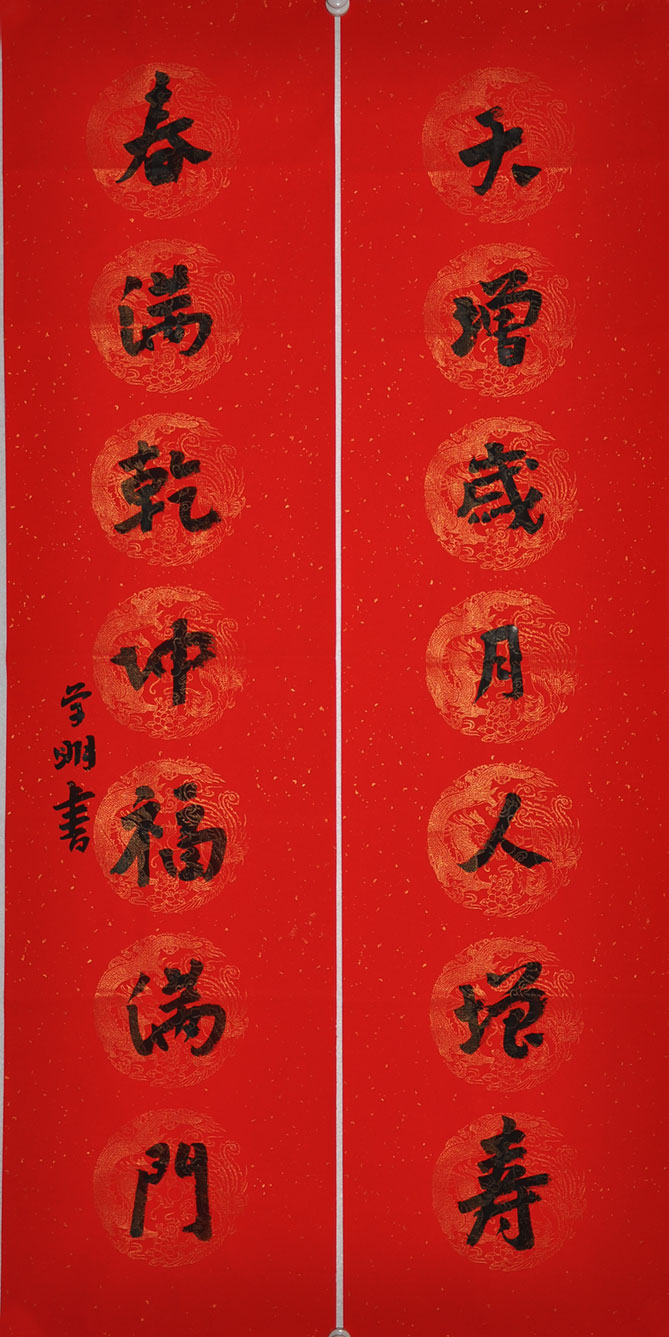 天增歲月人增壽
春滿乾坤福滿門
学明書